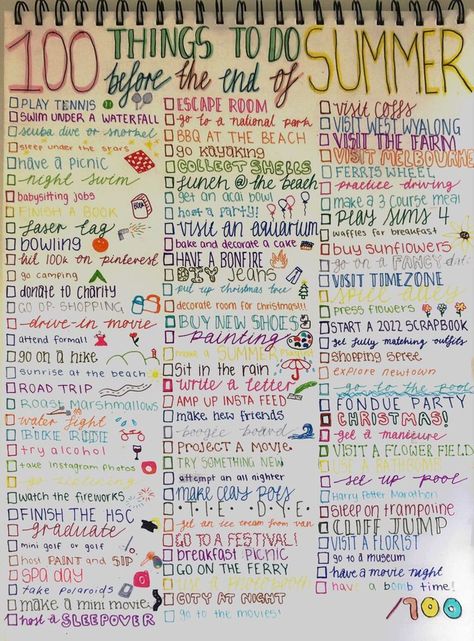 100 THINGS TO DO
before the end of SUMMER
PLAY TENNIS
SWIM UNDER A WATERFALL
scuba dive or snorkel
sleep under the stars
have a picnic
night swim
babysitting jobs
FINISH A BOOK
laser tag
bowling
hit 100k on pinterest
go camping
donate to charity
GO OP-SHOPPING
drive-in movie
attend formal!
go on a hike
sunrise at the beach
ROAD TRIP
Roast marshmallows
water fight
BIKE RIDE
try alcohol
take instagram photos
watch the fireworks
FINISH THE HSC
graduate
mini golf or golf
host PAINT and SIP
SPA DAY
take polaroids
make a mini movie
host a SLEEPOVER
ESCAPE ROOM
go to a national park
BBQ AT THE BEACH
go kayaking
COLLECT SHELLS
lunch @ the beach
get an acai bowl
host a party!
visit an aquarium
bake and decorate a cake
HAVE A BONFIRE
DIY Jeans
put up christmas tree
decorate room for christmas!!
BUY NEW SHOES
painting
make a SUMMER
Sit in the rain
write a letter
AMP UP INSTA FEED
make new friends
boogie board
PROJECT A MOVIE
TRY SOMETHING NEW
attempt an all nighter
make clay pots
TIE DYE
get an ice cream from van
GO TO A FESTIVAL!
breakfast picnic
GO ON THE FERRY
use a photobooth
CITY AT NIGHT
go to the movies!
visit coffs
VISIT WEST WYALONG
VISIT THE FARM
VISIT MELBOURNE
FERRIS WHEEL
practice driving
make a 3 course meal
PLAY SIMS 4
waffles for breakfast
buy sunflowers
go on a FANCY date
VISIT TIMEZONE
spill day
press flowers
START A 2022 SCRAPBOOK
get fully matching outfits
shopping spree
explore newtown
go to the pool
FONDUE PARTY
CHRISTMAS!
get a manicure
VISIT A FLOWER FIELD
USE A BATHBOMB
set up pool
Harry Potter Marathon
Sleep on trampoline
CLIFF JUMP
VISIT A FLORIST
go to a museum
have a movie night
have a bomb time!
/100